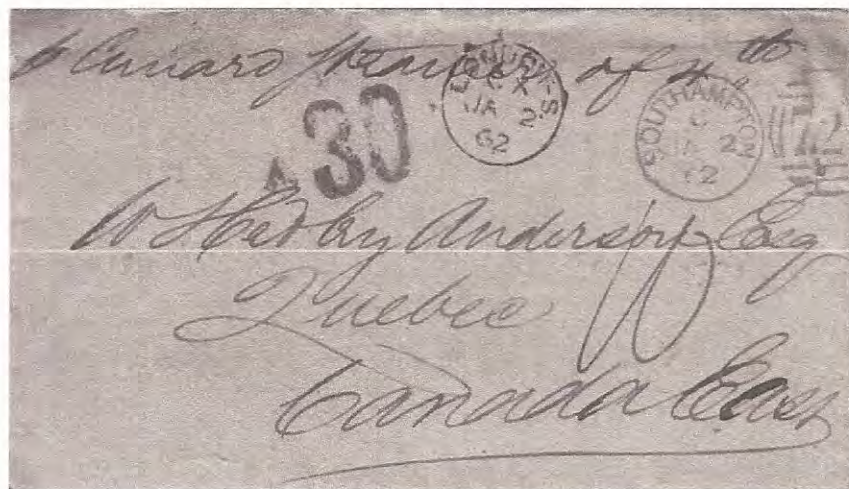 p Cunard Steamer of 4th
LONDON-S
CX
JA 2
62
SOUTHAMPTON
C
JA 2
62
30
W Anderson Esq
Quebec
Canada East